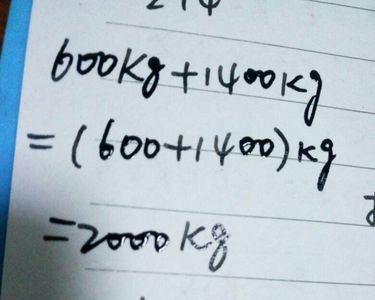 600kg+1400kg
=(600+1400)kg
=2000kg